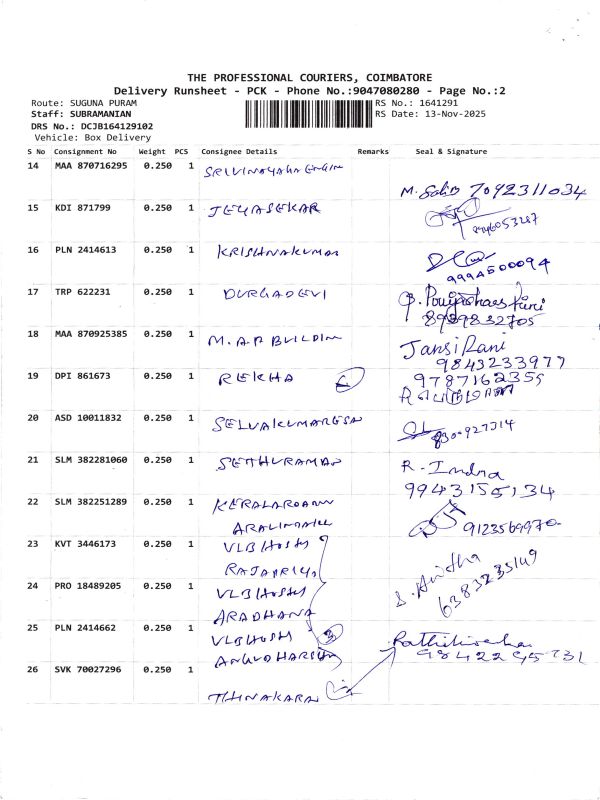 THE PROFESSIONAL COURIERS, COIMBATORE
Delivery Runsheet - PCK - Phone No.:9047080280 - Page No.:2
Route: SUGUNA PURAM RS No.: 1641291
Staff: SUBRAMANIAN RS Date: 13-Nov-2025
DRS No.: DCJB164129102
Vehicle: Box Delivery
S No Consignment No Weight PCS Consignee Details Remarks Seal & Signature
14 MAA 870716295 0.250 1 SRIVINAYAHA ENGIN
7092311034
15 KDI 871799 0.250 1 JEYASEKAR
16 PLN 2414613 0.250 1 KRISHNAKUMAR
9994500094
17 TRP 622231 0.250 1 DURGADEVI
8939832705
18 MAA 870925385 0.250 1 M.A.P BUILDIN
Jansi Rani
9843233977
19 DPI 861673 0.250 1 REKHA
9787162355
20 ASD 10011832 0.250 1 SELVAKUMARESAN
21 SLM 382281060 0.250 1 SETHURAMAN
R. Indra
9943155134
22 SLM 382251289 0.250 1
9123569970
23 KVT 3446173 0.250 1 VLB HOSH
RAJAPRIYA
24 PRO 18489205 0.250 1 VLB HOSH
ARADHANA
S. Anitha
6383235149
25 PLN 2414662 0.250 1 VLB HOSH 3
26 SVK 70027296 0.250 1